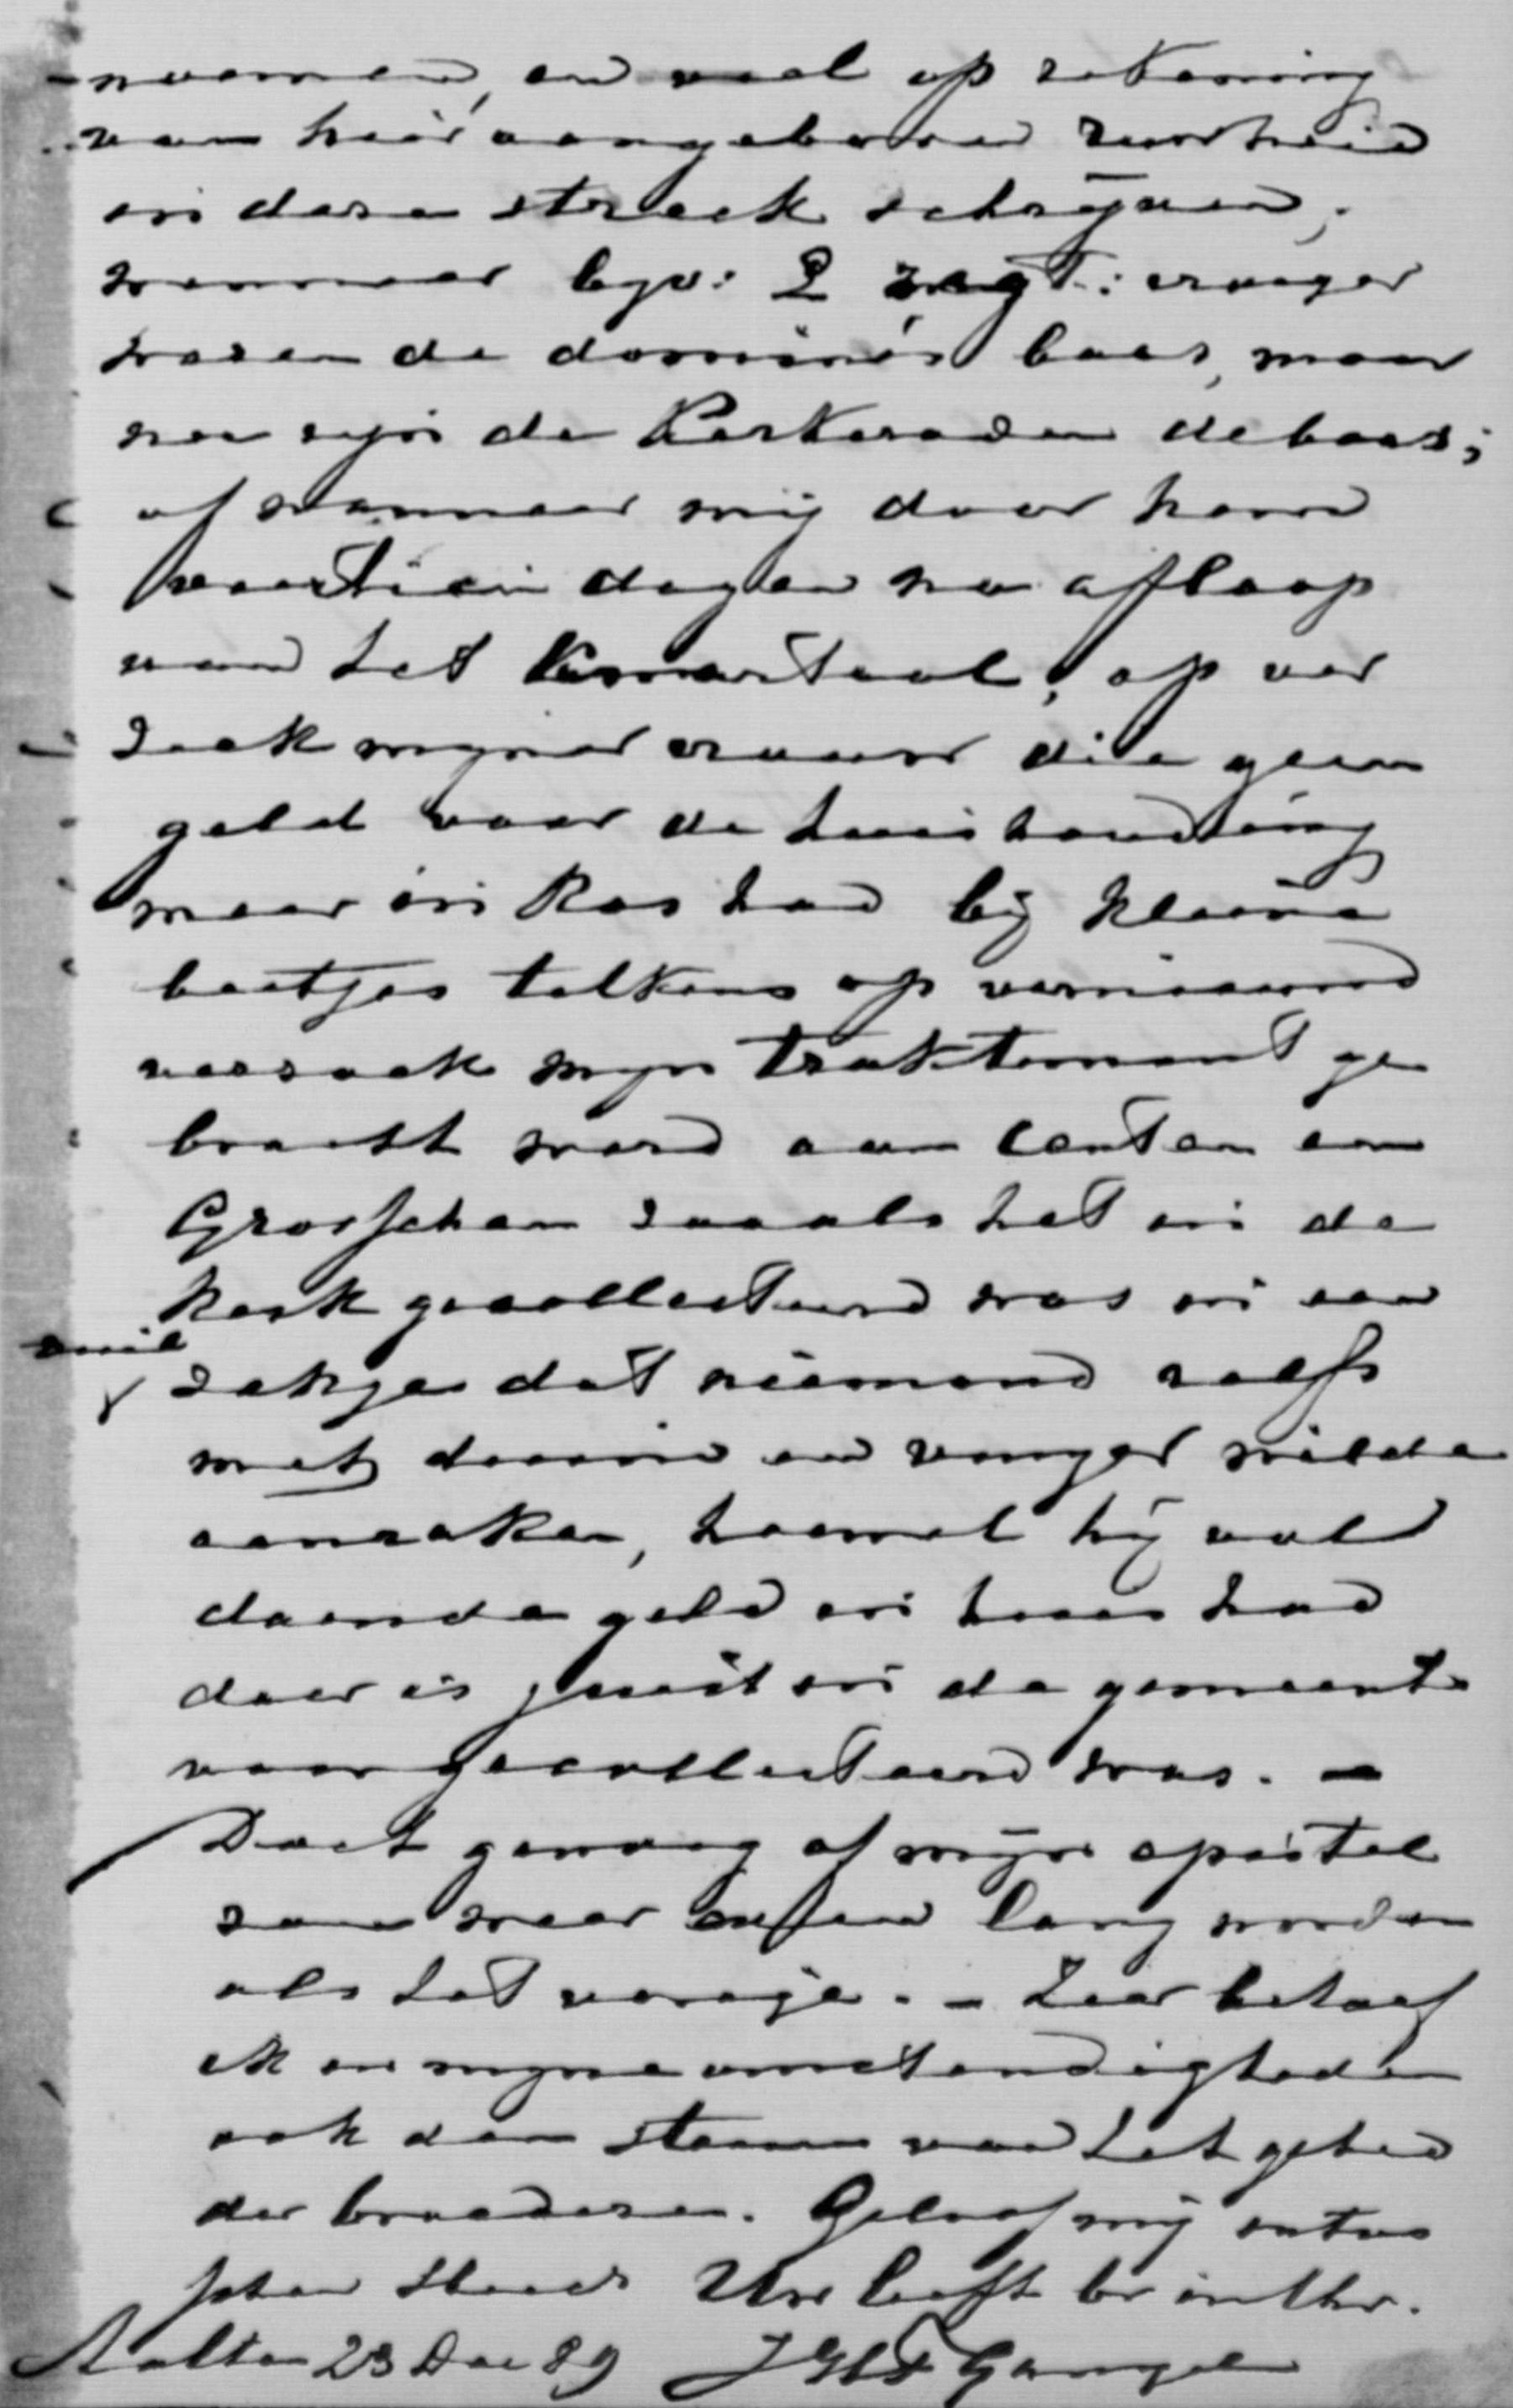 naamen, en veel op rekening
van hier aangeboren ruwheid
in deze streek schrijven;
wanneer bijv: L zegt: vroeger
waren de dominés baas, maar
nu zijn de Kerkeraden de baas;
of wanneer mij door hem
veertien dagen na afloop
van het Kwartaal, op ver
zoek mijner vrouw die geen
geld voor de huishouding
meer in Kas had bij kleine
beetjes telkens op vernieuwd
verzoek mijn traktement ge
bracht werd aan centen en
Groschen zooals het in de
kerk gecollecteerd was in een
vuil
zakje dat niemand zelfs
met duim en vinger wilde
aanraken, hoewel hij vol
doende geld in huis had
daar er juist in de gemeente
voor gecollecteerd was. —
Doch genoeg of mijn epistel
zou weer even lang worden
als het vorige. – Zeer behoef
ik in mijne omstandigheden
ook den steun van het gebed
der broederen. Geloof mij intus
schen steeds Uw liefh br in Chr.
Aalten 23 Dec 89 Gangel